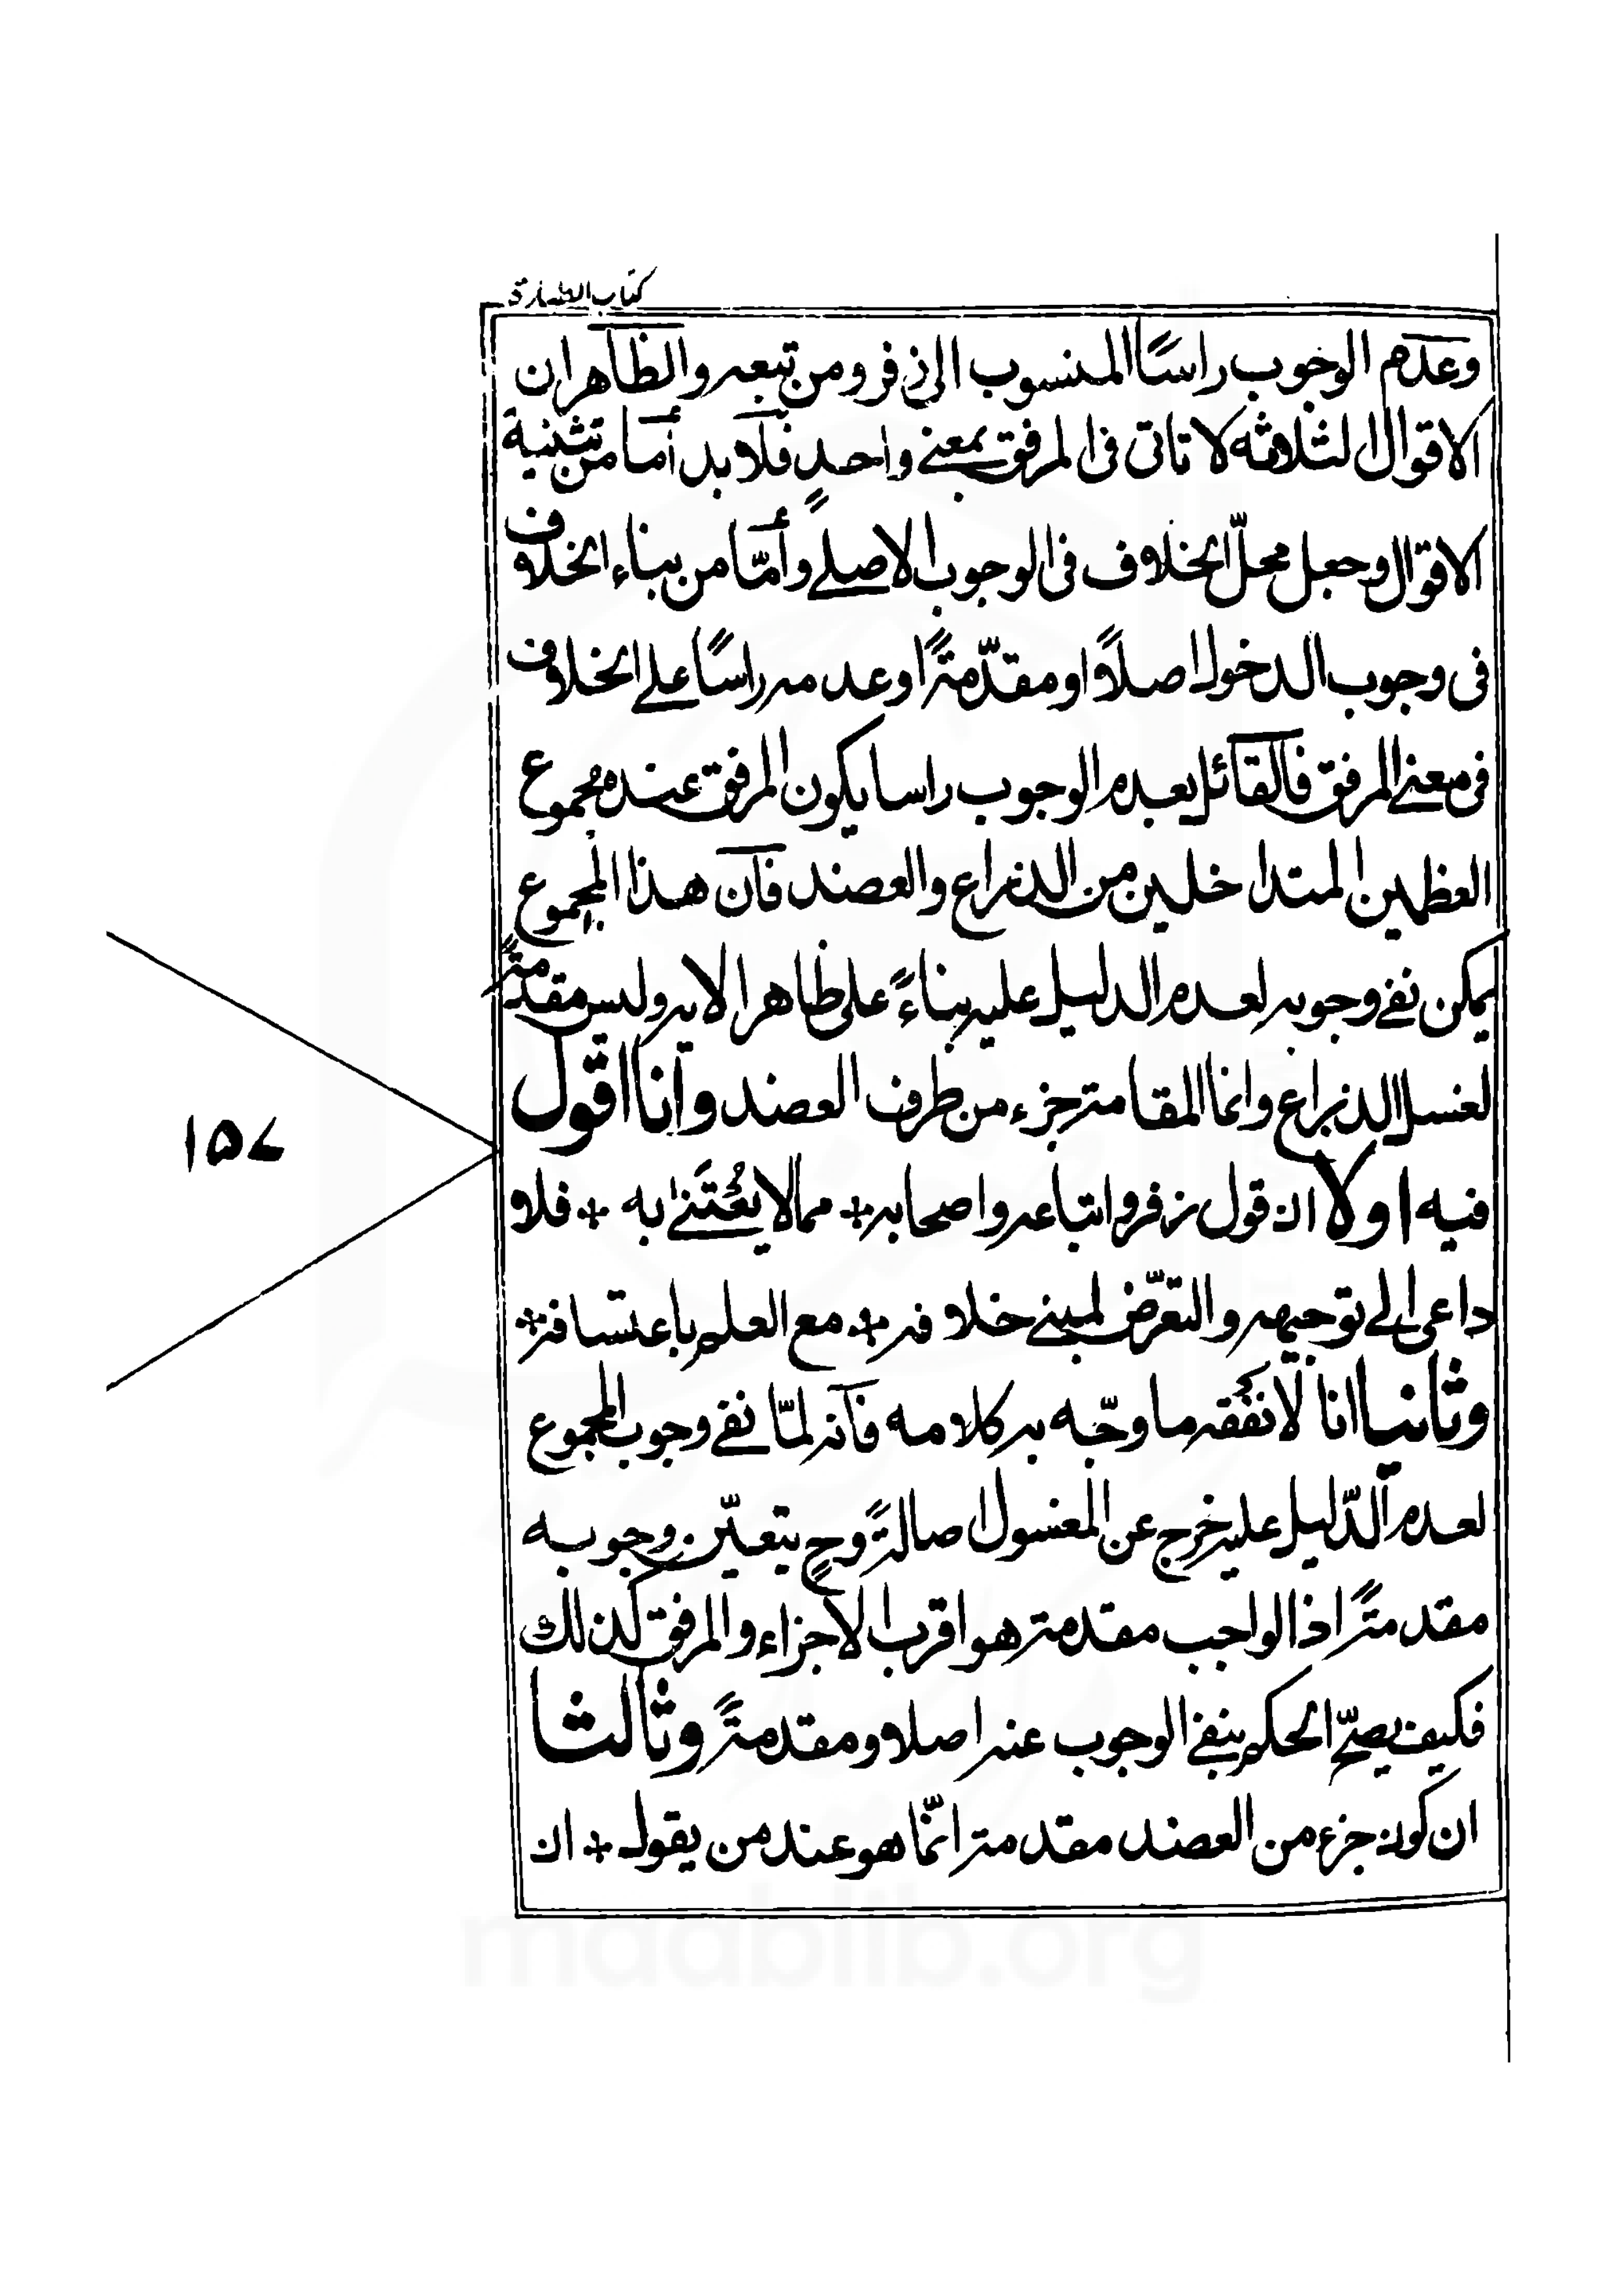 كتاب الطهارة
وعدم الوجوب راسًا المنسوب الى زفر ومن تبعه والظاهر ان
الاقوال الثلاثه لا تاتى فى المرفق بمعنى واحد فلا بد أما من تثنية
الاقوال وجعل محلّ الخلاف فى الوجوب الاصلے وأمّا من بناء الخلاف
فى وجوب الدخول اصلاً او مقدّمةً او عدمه راسًا على الخلاف
فى معنى المرفق فالقائل بعدم الوجوب راسا يكون المرفق عنده مجموع
العظمين المتداخلين من الذراع والعضد فان هذا المجموع
يمكن نفى وجوبه لعدم الدليل عليه بناءً على ظاهر الايه وليس مقدمةً
لغسل الذراع وانما المقامة جزء من طرف العضد وانا اقول
فيه اولا ان قول زفر واتباعه واصحابه * مما لا يُعْتَنىٰ به * فلا
داعى الى توجيهه والتعرّض لمبنى خلافه * مع العلم باعتسافه *
وثانيا انا لا نفقه ما وجّه به كلامه فانه لمّا نفى وجوب المجموع
لعدم الدّليل عليه خرج عن المغسول اصالةً وح يتعيّن وجوبه
مقدمةً اذ الواجب مقدمة هو اقرب الاجزاء والمرفق كذلك
فكيف يصحّ الحكم بنفى الوجوب عنه اصلا ومقدمةً وثالثا
ان كون جزء من العضد مقدمة انّما هو عند من يقول * ان
١٥٧
maablib.org